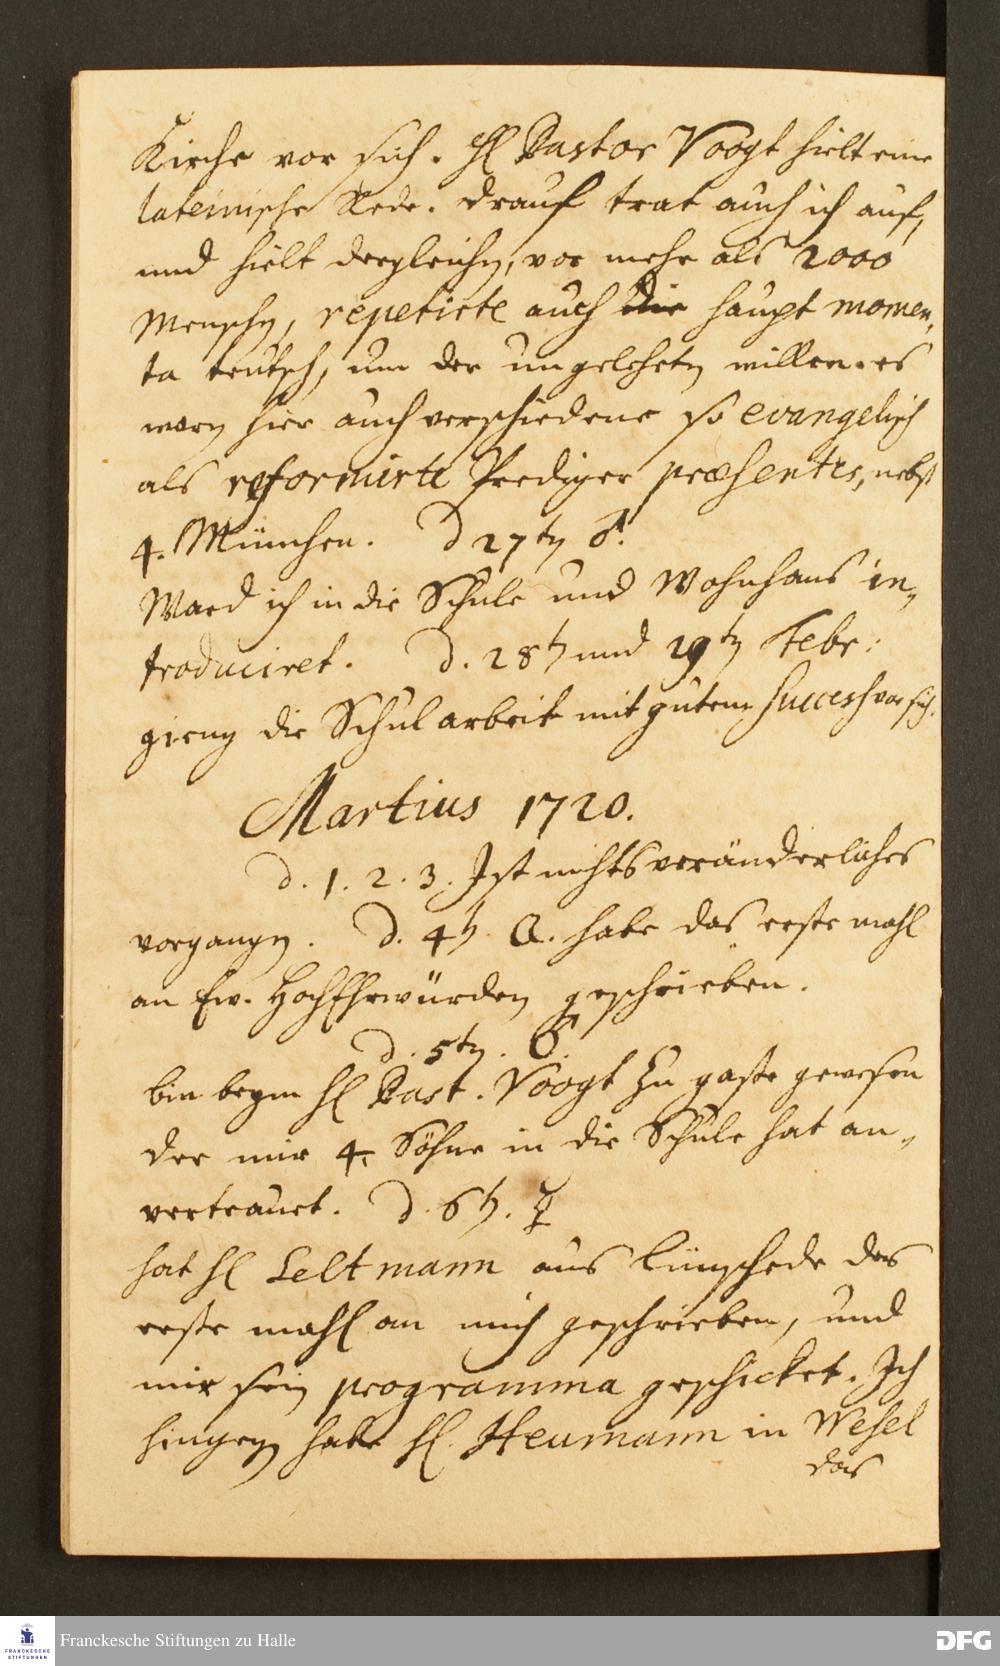 Kirche vor sich. Hl Pastor Voogt hielt eine
lateinische Rede. Drauf trat auch ich auf,
und hielt dergleichen, vor mehr als 2000
Menschen, repetirte auch die haupt momen,
ta teutsch, um der ungelehrten willen. es
waren hier auch verschiedene so evangelisch
als reformirte Prediger præsentes, nebst
4. München. D 27ten ♂.
Ward ich in die Schule und Wohnhaus in,
troduciret. D. 28t und 29ten Febr:
gieng die Schularbeit mit gutem success vor sich.
Martius 1720.
D. 1. 2. 3. Ist nichts veränderliches
vorgangen. D. 4t. habe das erste mahl
an Ew. HochEhrwürden geschrieben.
D. 5ten. ♂.
bin beym Hl Past. Voogt zu gaste gewesen
der mir 4. Söhne in die Schule hat an,
vertrauet. D. 6t. ☿
hat Hl Seltmann aus Lünschede das
erste mahl an mich geschrieben, und
mir sein programma geschicket. Ich
hingegen habe Hl. Heumann in Wesel
das
Franckesche Stiftungen zu Halle
FRANCKESCHE
STIFTUNGEN
DFG